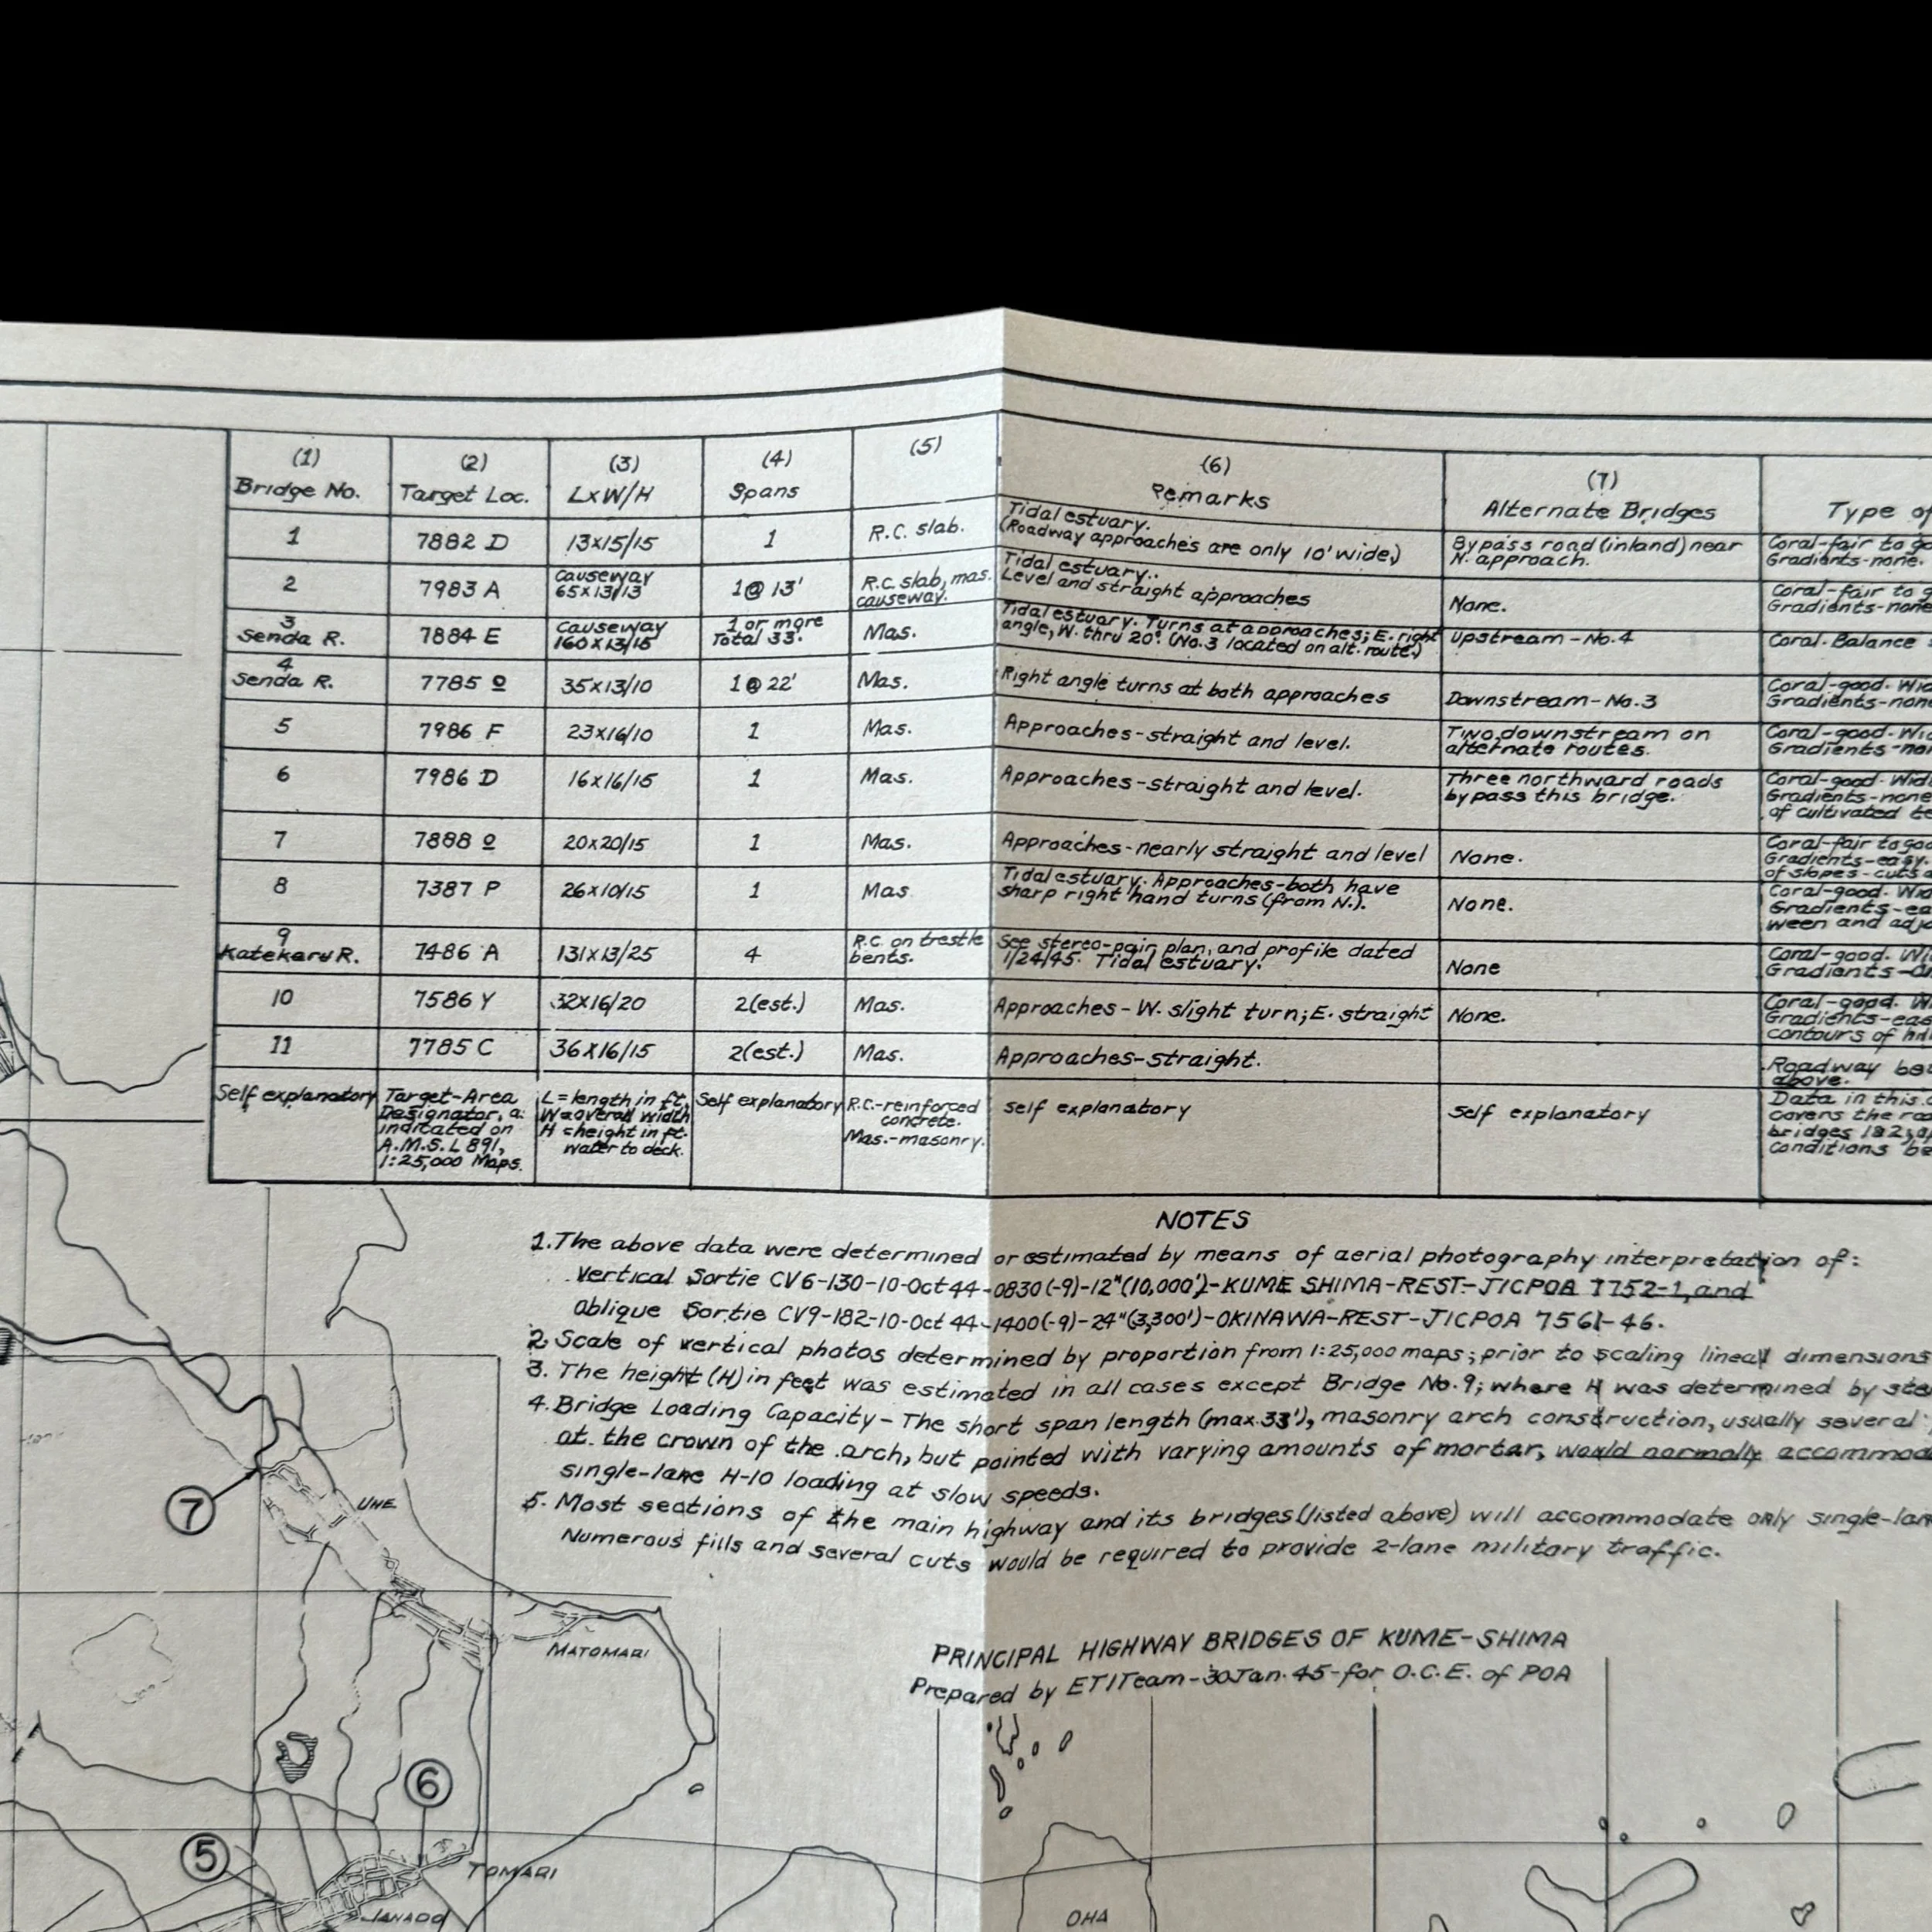 (1) (2) (3) (4) (5) (6) (7)
Bridge No. Target Loc. LxW/H Spans Remarks Alternate Bridges Type of
1 7882 D 13x15/15 1 R.C. slab. Tidal estuary. Bypass road (inland) near Coral-fair to
(Roadway approaches are only 10' wide.) N. approach. Gradients-none.
2 7983 A Causeway 1@ 13' R.C. slab, mas. Tidal estuary. None. Coral-fair to
65x13/13 causeway. Level and straight approaches Gradients-none
3 7884 E Causeway 1 or more Mas. Tidal estuary. Turns at approaches; E. right Upstream-No.4 Coral. Balance
Senda R. 160x13/15 Total 33'. angle, W. thru 20°. (No.3 located on alt. route.)
4 7785 O 35x13/10 1@22' Mas. Right angle turns at both approaches Downstream-No.3 Coral-good.
Senda R. Gradients-none
5 7986 F 23x16/10 1 Mas. Approaches-straight and level. Two downstream on Coral-good.
alternate routes. Gradients-
6 7986 D 16x16/15 1 Mas. Approaches-straight and level. Three northward roads Coral-good.
bypass this bridge. Gradients-none
of cultivated
7 7888 O 20x20/15 1 Mas. Approaches-nearly straight and level None. Coral-fair to
Gradients-easy.
of slopes-cuts
8 7387 P 26x10/15 1 Mas. Tidal estuary. Approaches-both have None. Coral-good.
sharp right hand turns (from N.). Gradients-
ween and
9 7486 A 131x13/25 4 R.C. on trestle See stereo-pair plan, and profile dated None Coral-good.
Katekaru R. bents. 1/24/45. Tidal estuary. Gradients-
10 7586 Y 32x16/20 2(est.) Mas. Approaches-W. slight turn; E. straight None. Coral-good.
Gradients-
contours of
11 7785 C 36x16/15 2(est.) Mas. Approaches-straight. Roadway
above.
Self explanatory Target-Area L=length in ft. Self explanatory R.C.-reinforced self explanatory Self explanatory Data in this
Designator, as W=overall width concrete. covers the
indicated on H =height in ft. Mas.-masonry. bridges 1&2;
A.M.S. L 891, water to deck. conditions
1:25,000 Maps.
NOTES
1. The above data were determined or estimated by means of aerial photography interpretation of:
Vertical Sortie CV6-130-10-Oct 44-0830(-9)-12"(10,000')-KUME SHIMA-REST-JICPOA 7752-1, and
Oblique Sortie CV9-182-10-Oct 44-1400(-9)-24"(3,300')-OKINAWA-REST-JICPOA 7561-46.
2. Scale of vertical photos determined by proportion from 1:25,000 maps; prior to scaling lineal dimensions
3. The height (H) in feet was estimated in all cases except Bridge No. 9; where H was determined by
4. Bridge Loading Capacity-The short span length (max.33'), masonry arch construction, usually several
at the crown of the arch, but pointed with varying amounts of mortar, would normally
single-lane H-10 loading at slow speeds.
5. Most sections of the main highway and its bridges (listed above) will accommodate only
Numerous fills and several cuts would be required to provide 2-lane military traffic.
7
UNE
MATOMARI
PRINCIPAL HIGHWAY BRIDGES OF KUME-SHIMA
Prepared by ETITeam-30Jan.45-for O.C.E. of POA
6
5
TOMARI
JANADO
OHA